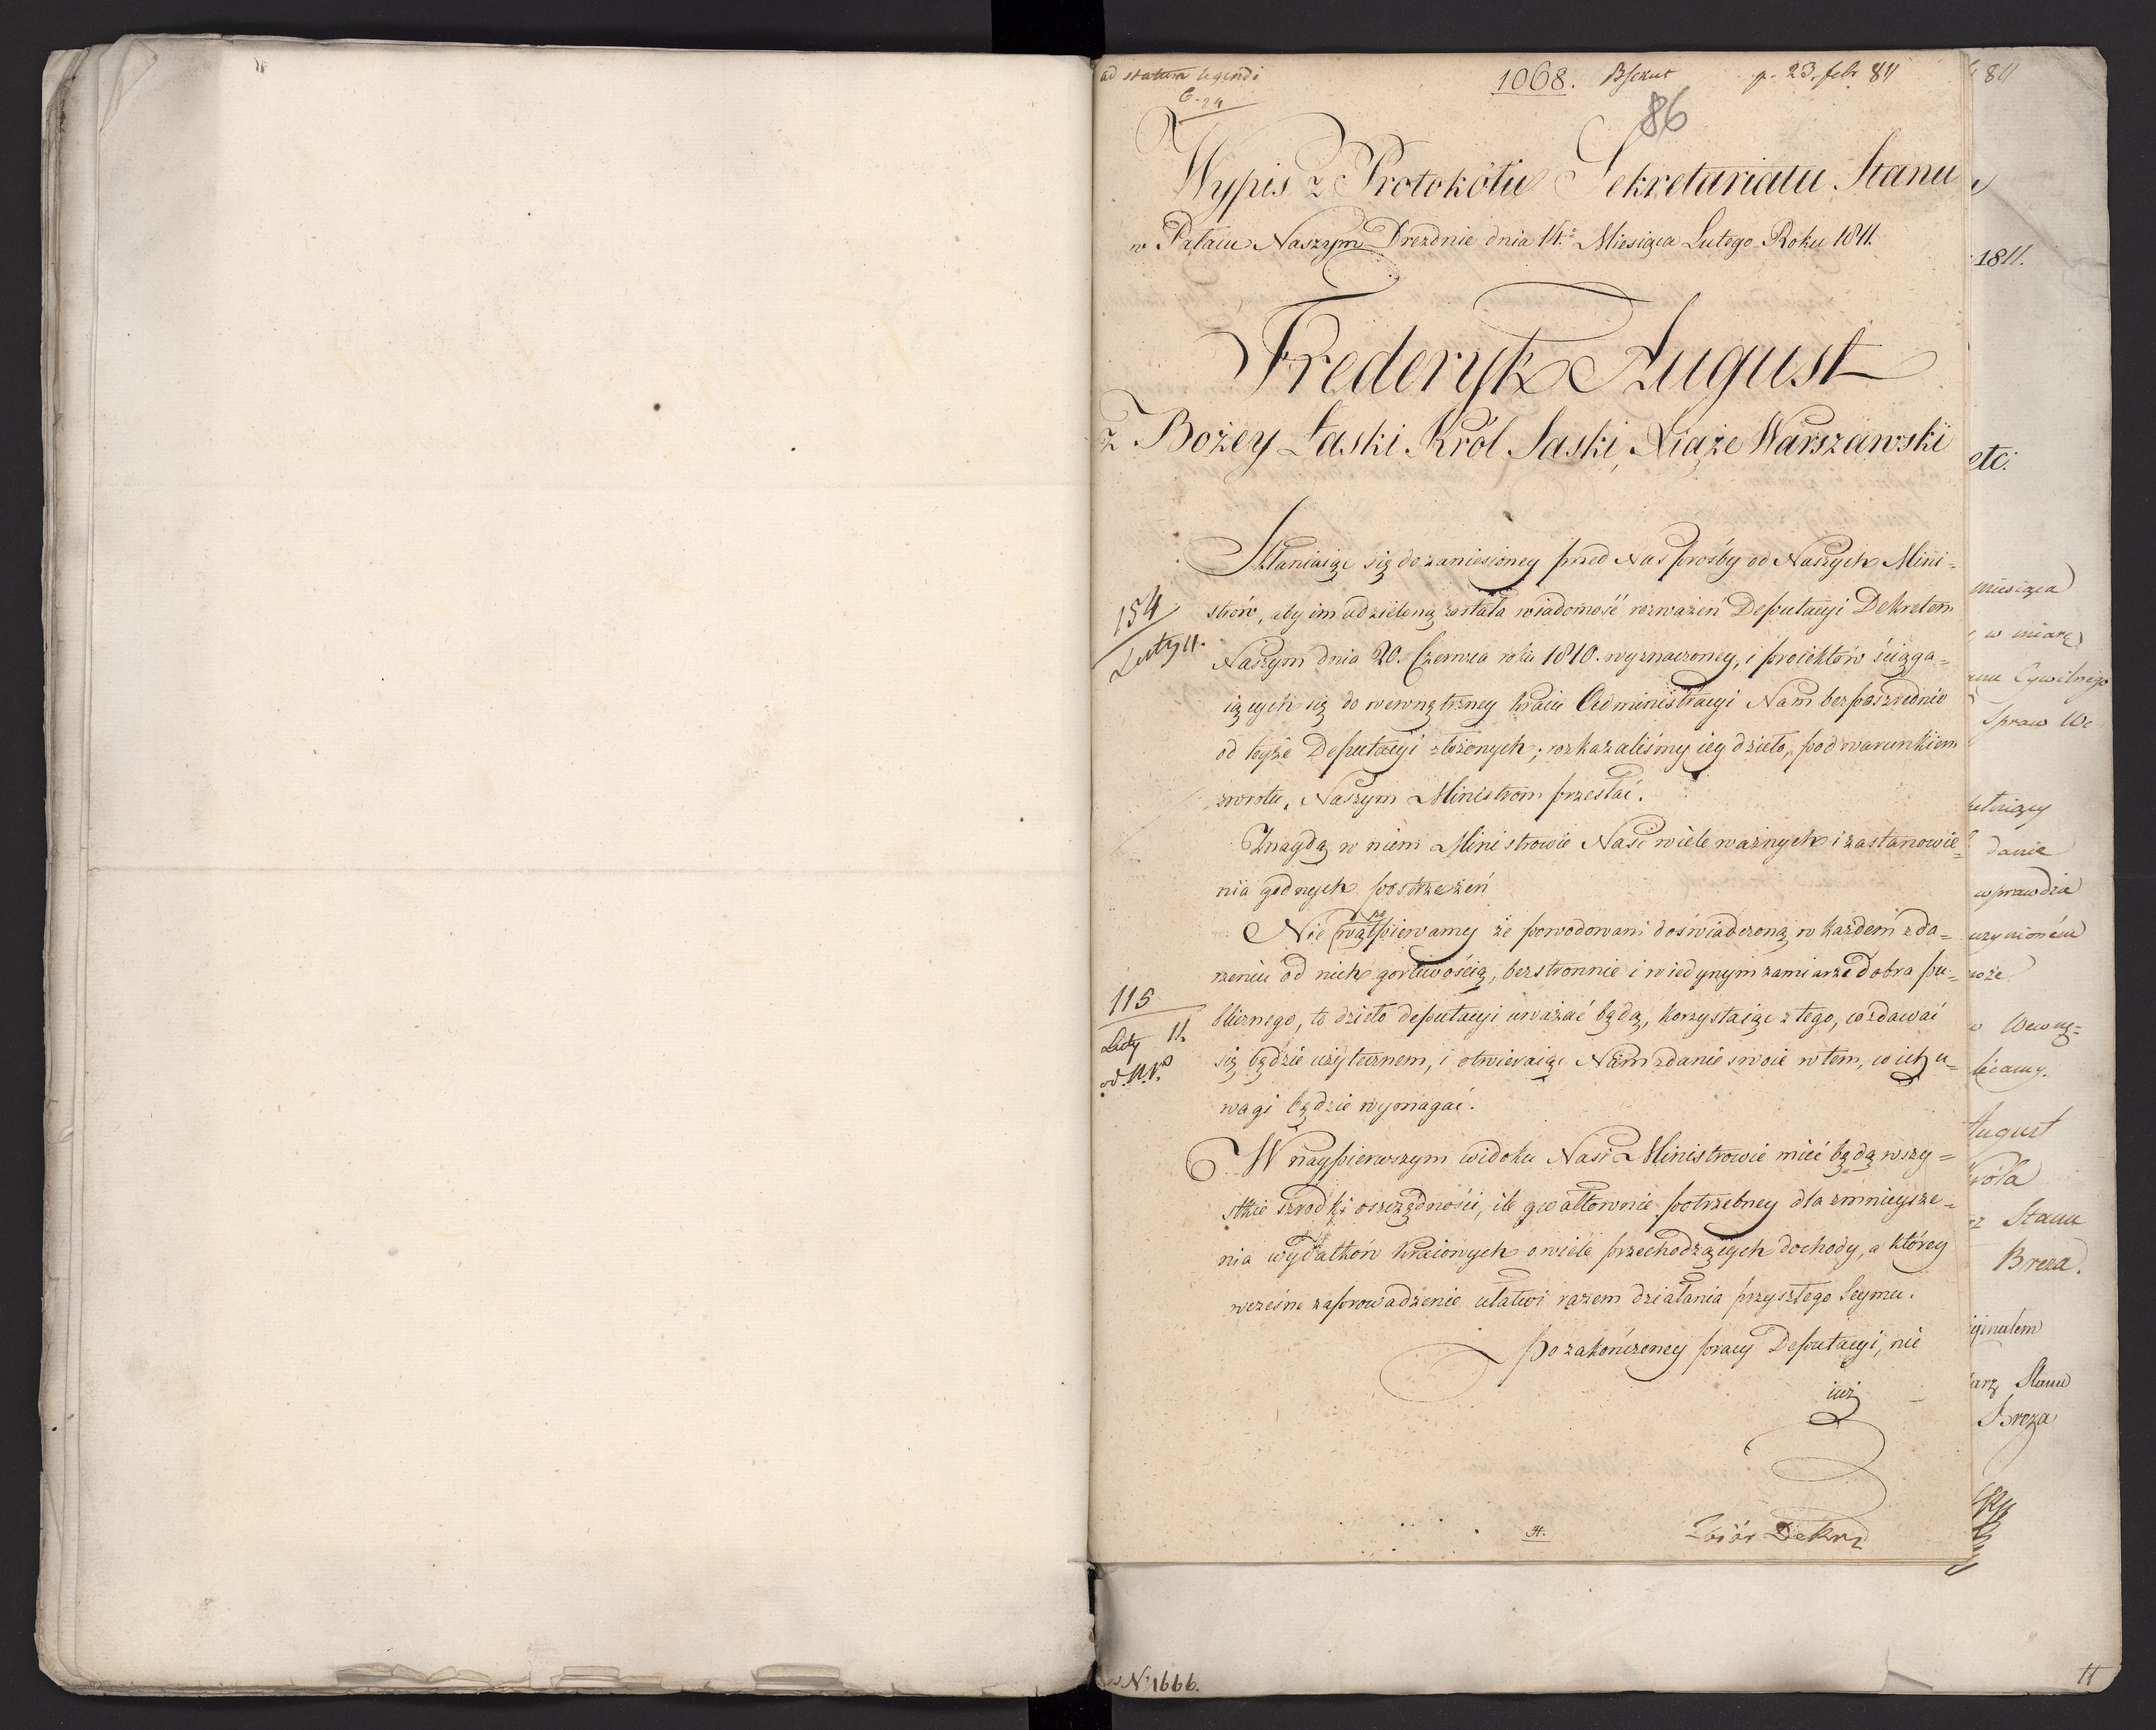 ad statum legendi
C. 24
1068. p. 23. febr 811
86
Wypis z Protokółu Sekretariatu Stanu
w Pałacu Naszym Drezdnie dnia 14. Miesiąca Lutego Roku 1811.
Frederyk August
z Bożey Łaski Król Saski, Xiąże Warszawski
Skłaniaiąc się do zaniesioney przed Nas prośby od Naszych Mini-
strów, aby im udzieloną została wiadomość rozważeń Deputacyi Dekretem
Naszym dnia 20. Czerwca roku 1810. wyznaczoney, i proiektów ściąga-
iących się do wewnętrzney Kraiu Administracyi Nam bezpośrzednio
od teyże Deputacyi złożonych; rozkazaliśmy iey dzieło, pod warunkiem
zwrotu, Naszym Ministrom przesłać.
Znaydą w niem Ministrowie Nasi wiele ważnych i zastanowie-
nia godnych postrzeżeń
Nie powątpiewamy że powodowani doświadczoną w każdem zda-
rzeniu od nich gorliwością, bezstronnie i w iedynym zamiarze dobra pu-
blicznego, to dzieło deputacyi uważać będą, korzystaiąc z tego, co zdawać
się będzie użytecznem, i otwieraiąc Nam zdanie swoie w tem, co ich u-
wagi będzie wymagać.
W naypierwszym widoku Nasi Ministrowie mieć będą wszy-
stkie szrodki oszczędności, ile gwałtownie potrzebney dla zmnieysze-
nia wydatków kraiowych o wiele przechodzących dochody, a którey
wcześne zaprowadzenie ułatwi razem działania przyszłego Seymu.
Po zakończoney pracy Deputacyi, nie
iuż
154
Luty 11.
115
Luty 11
Zbiór Dekr
H.
N. 1666.
811
1811.
etc.
miesiąca
w miarę
Cywilnego
Spraw We
danie
wprawdzie
uczynioném
może
w Wewnę-
lecamy.
August
Króla
Stanu
Breza.
Stanu
Breza
11